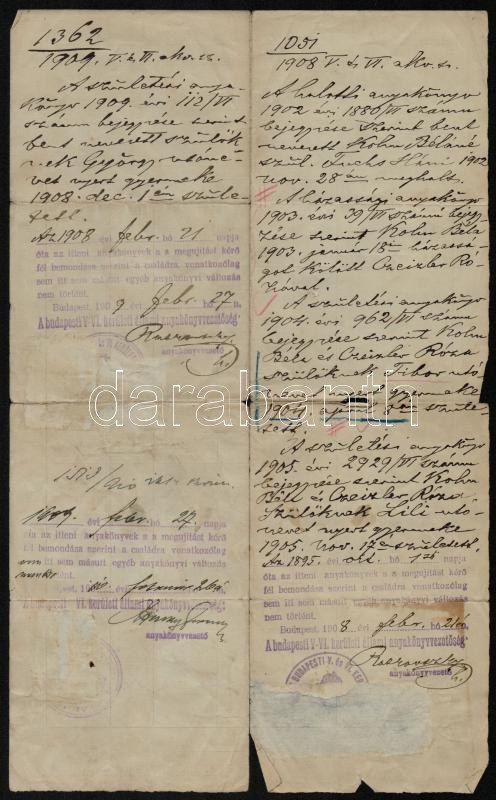 1362
1909. V. és VI. akv. sz.
A születési anya-
könyv 1909. évi 112/VI
számu bejegyzése szerint
bent nevezett szülők-
nek György utóne-
vet nyert gyermeke
1908. dec. 1én szüle-
tett.
Az 1908 évi febr. hó 21 napja
óta az itteni anyakönyvek s a megujitást kérő
fél bemondása szerint a családra vonatkozólag
sem itt sem másutt egyéb anyakönyvi változás
nem történt.
Budapest, 1909 febr. 27
A budapesti V-VI. kerületi állami anyakönyvvezetőség:
anyakönyvvezető
1909. évi febr. hó 27. napja
óta az itteni anyakönyvek s a megujitást kérő
fél bemondása szerint a családra vonatkozólag
sem itt sem másutt egyéb anyakönyvi változás
nem történt.
A budapesti V-VI. kerületi állami anyakönyvvezetőség:
anyakönyvvezető
1051
1908 V. és VI. akv. sz.
A halotti anyakönyv
1902 évi 1880/VI számu
bejegyzése szerint bent
nevezett Kohn Béláné
szül. Fuchs Háni 1902
nov. 28án meghalt.
A házassági anyakönyv
1903. évi 39/VI számu bejegy-
zése szerint Kohn Béla
1903. január 18án házassá-
got kötött Czeizler Ró-
zával.
A születési anyakönyv
1904. évi 962/VI számu
bejegyzése szerint Kohn
Béla és Czeizler Róza
szülőknek Tibor utó-
nevet nyert gyermeke
1904. ápr. szüle-
tett.
A születési anyakönyv
1905. évi 2929/VI számu
bejegyzése szerint Kohn
Béla és Czeizler Róza
szülőknek Lili utó-
nevet nyert gyermeke
1905. nov. 17én született.
Az 1895. évi okt. hó 1ső napja
óta az itteni anyakönyvek s a megujitást kérő
fél bemondása szerint a családra vonatkozólag
sem itt sem másutt egyéb anyakönyvi változás
nem történt.
Budapest, 1908 febr. hó 21én
A budapesti V-VI. kerületi állami anyakönyvvezetőség:
anyakönyvvezető
BUDAPESTI V. ÉS VI. KER
darabanth